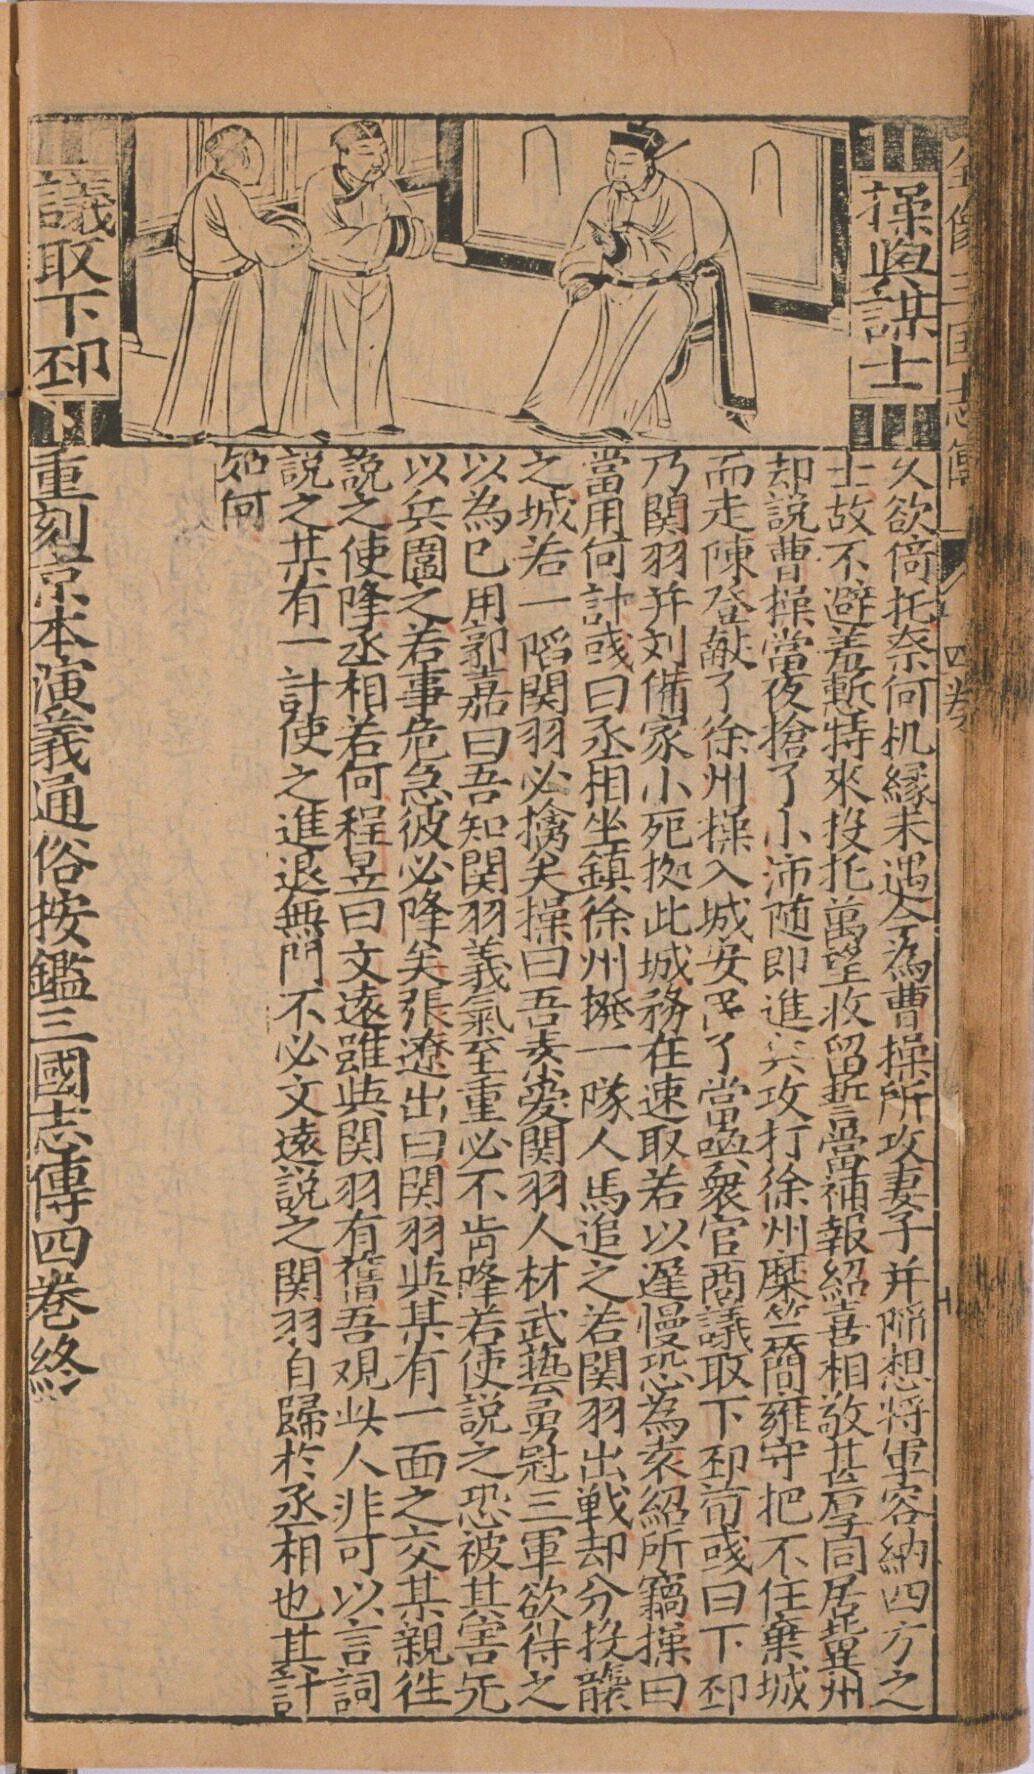 全像三国志傳
四卷
操與謀士
議取下邳
久欲倚托奈何机緣未遇今為曹操所攻妻子并陷想将軍容納四方之
士故不避羞慚特來投托萬望收留誓當補報紹喜相敬甚厚同居冀州
却説曹操當夜搶了小沛随即進兵攻打徐州糜竺簡雍守把不住棄城
而走陳登献了徐州操入城安民了當與衆官商議取下邳荀彧曰下邳
乃関羽并刘備家小死拠此城務在速取若以遲慢恐為袁紹所竊操曰
當用何計彧曰丞相坐鎮徐州撥一隊人馬追之若関羽出戦却分投襲
之城若一陷関羽必擒矣操曰吾素愛関羽人材武藝勇冠三軍欲待之
以為已用郭嘉曰吾知関羽義氣至重必不肯降若使説之恐被其害先
以兵圍之若事危急彼必降矣張遼出曰関羽與某有一面之交某親往
説之使降丞相若何程昱曰文遠雖與関羽有舊吾观此人非可以言詞
説之某有一計使之進退無門不必文遠説之関羽自歸於丞相也其計
如何
重刻京本演義通俗按鑑三國志傳四卷終